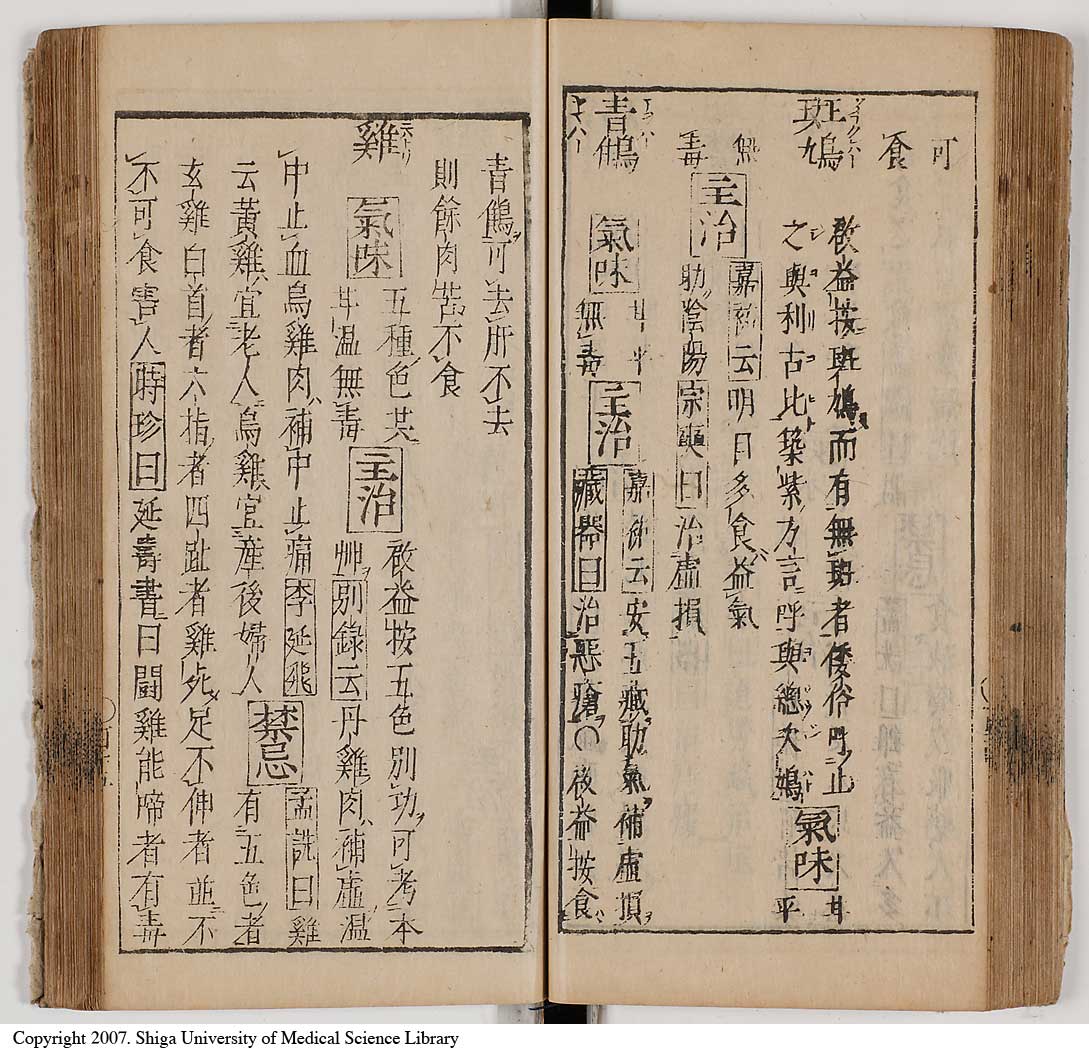 可
食
斑鳩
啟益按斑鳩而有無斑者倭俗呼止
之與利古比築紫方言呼與總次鳩
氣味
甘平
無
毒
主治
嘉祐云明目多食益氣
助陰陽宗奭曰治虛損
青鶴
氣味
甘平
無毒
主治
嘉祐云安五臟助氣補虛損
藏器曰治惡瘡〇啟益按食
青鶴可去肝不去
則餘肉苦不食
雞
氣味
五種色共
甘溫無毒
主治
啟益按五色別功可考本
艸別録云丹雞肉補虛溫
中止血烏雞肉補中止痛李延飛
云黃雞宜老人烏雞宜產後婦人
禁忌
孟詵曰雞
有五色者
玄雞白首者六指者四趾者雞死足不伸者並不
不可食害人時珍曰延壽書曰闘雞能啼者有毒
Copyright 2007. Shiga University of Medical Science Library